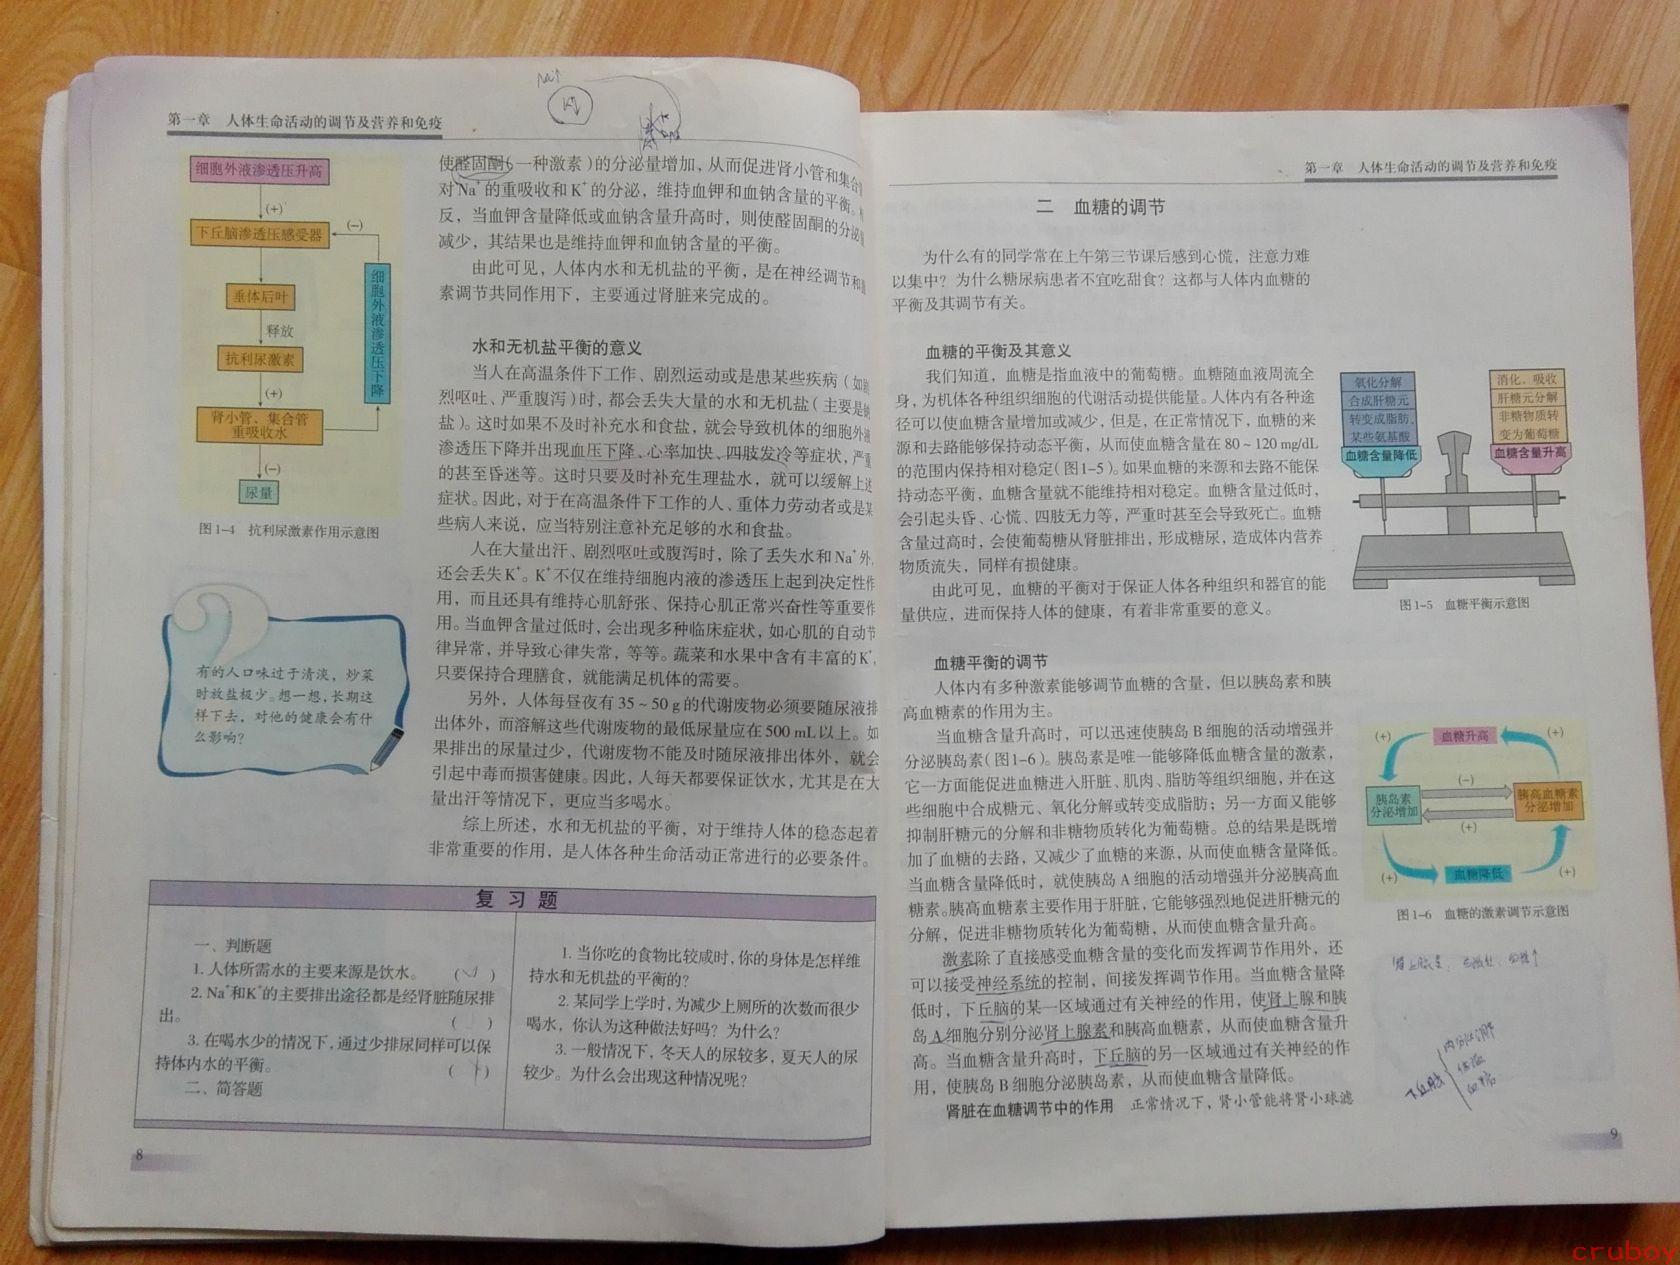 第一章 人体生命活动的调节及营养和免疫
细胞外液渗透压升高
(+)
下丘脑渗透压感受器
(−)
垂体后叶
释放
抗利尿激素
(+)
肾小管、集合管
重吸收水
(−)
尿量
细胞外液渗透压下降
图1-4 抗利尿激素作用示意图
有的人口味过于清淡，炒菜
时放盐极少。想一想，长期这
样下去，对他的健康会有什
么影响？
使醛固酮(一种激素)的分泌量增加，从而促进肾小管和集合
对Na⁺的重吸收和K⁺的分泌，维持血钾和血钠含量的平衡。
反，当血钾含量降低或血钠含量升高时，则使醛固酮的分泌
减少，其结果也是维持血钾和血钠含量的平衡。
由此可见，人体内水和无机盐的平衡，是在神经调节和
素调节共同作用下，主要通过肾脏来完成的。
水和无机盐平衡的意义
当人在高温条件下工作、剧烈运动或是患某些疾病(如
烈呕吐、严重腹泻)时，都会丢失大量的水和无机盐(主要是
盐)。这时如果不及时补充水和食盐，就会导致机体的细胞外
渗透压下降并出现血压下降、心率加快、四肢发冷等症状，严重
的甚至昏迷等。这时只要及时补充生理盐水，就可以缓解上述
症状。因此，对于在高温条件下工作的人、重体力劳动者或是某
些病人来说，应当特别注意补充足够的水和食盐。
人在大量出汗、剧烈呕吐或腹泻时，除了丢失水和Na⁺外，
还会丢失K⁺。K⁺不仅在维持细胞内液的渗透压上起到决定性作
用，而且还具有维持心肌舒张、保持心肌正常兴奋性等重要作
用。当血钾含量过低时，会出现多种临床症状，如心肌的自动节
律异常，并导致心律失常，等等。蔬菜和水果中含有丰富的K⁺，
只要保持合理膳食，就能满足机体的需要。
另外，人体每昼夜有35～50 g的代谢废物必须要随尿液排
出体外，而溶解这些代谢废物的最低尿量应在500 mL以上。如
果排出的尿量过少，代谢废物不能及时随尿液排出体外，就会
引起中毒而损害健康。因此，人每天都要保证饮水，尤其是在大
量出汗等情况下，更应当多喝水。
综上所述，水和无机盐的平衡，对于维持人体的稳态起着
非常重要的作用，是人体各种生命活动正常进行的必要条件。
复习题
一、判断题
1. 人体所需水的主要来源是饮水。 (√)
2. Na⁺和K⁺的主要排出途径都是经肾脏随尿排
出。 ( )
3. 在喝水少的情况下，通过少排尿同样可以保
持体内水的平衡。 ( )
二、简答题
1. 当你吃的食物比较咸时，你的身体是怎样维
持水和无机盐的平衡的？
2. 某同学上学时，为减少上厕所的次数而很少
喝水，你认为这种做法好吗？为什么？
3. 一般情况下，冬天人的尿较多，夏天人的尿
较少。为什么会出现这种情况呢？
8
第一章 人体生命活动的调节及营养和免疫
二 血糖的调节
为什么有的同学常在上午第三节课后感到心慌，注意力难
以集中？为什么糖尿病患者不宜吃甜食？这都与人体内血糖的
平衡及其调节有关。
血糖的平衡及其意义
我们知道，血糖是指血液中的葡萄糖。血糖随血液周流全
身，为机体各种组织细胞的代谢活动提供能量。人体内有各种途
径可以使血糖含量增加或减少，但是，在正常情况下，血糖的来
源和去路能够保持动态平衡，从而使血糖含量在80～120 mg/dL
的范围内保持相对稳定(图1-5)。如果血糖的来源和去路不能保
持动态平衡，血糖含量就不能维持相对稳定。血糖含量过低时，
会引起头昏、心慌、四肢无力等，严重时甚至会导致死亡。血糖
含量过高时，会使葡萄糖从肾脏排出，形成糖尿，造成体内营养
物质流失，同样有损健康。
由此可见，血糖的平衡对于保证人体各种组织和器官的能
量供应，进而保持人体的健康，有着非常重要的意义。
血糖平衡的调节
人体内有多种激素能够调节血糖的含量，但以胰岛素和胰
高血糖素的作用为主。
当血糖含量升高时，可以迅速使胰岛B细胞的活动增强并
分泌胰岛素(图1-6)。胰岛素是唯一能够降低血糖含量的激素，
它一方面能促进血糖进入肝脏、肌肉、脂肪等组织细胞，并在这
些细胞中合成糖元、氧化分解或转变成脂肪；另一方面又能够
抑制肝糖元的分解和非糖物质转化为葡萄糖。总的结果是既增
加了血糖的去路，又减少了血糖的来源，从而使血糖含量降低。
当血糖含量降低时，就使胰岛A细胞的活动增强并分泌胰高血
糖素。胰高血糖素主要作用于肝脏，它能够强烈地促进肝糖元的
分解，促进非糖物质转化为葡萄糖，从而使血糖含量升高。
激素除了直接感受血糖含量的变化而发挥调节作用外，还
可以接受神经系统的控制，间接发挥调节作用。当血糖含量降
低时，下丘脑的某一区域通过有关神经的作用，使肾上腺和胰
岛A细胞分别分泌肾上腺素和胰高血糖素，从而使血糖含量升
高。当血糖含量升高时，下丘脑的另一区域通过有关神经的作
用，使胰岛B细胞分泌胰岛素，从而使血糖含量降低。
肾脏在血糖调节中的作用 正常情况下，肾小管能将肾小球滤
氧化分解
合成肝糖元
转变成脂肪、
某些氨基酸
血糖含量降低
消化、吸收
肝糖元分解
非糖物质转
变为葡萄糖
血糖含量升高
图1-5 血糖平衡示意图
(+)
血糖升高
(+)
胰岛素
分泌增加
(−)
(+)
胰高血糖素
分泌增加
(+)
血糖降低
(+)
图1-6 血糖的激素调节示意图
下丘脑
体温
血糖
9
crubov